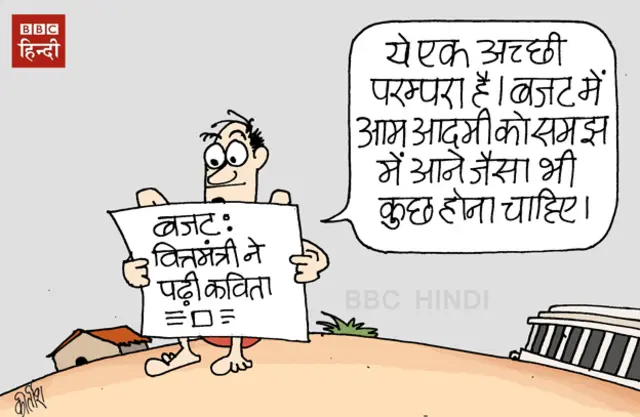 BBC
हिन्दी
ये एक अच्छी
परम्परा है। बजट में
आम आदमी को समझ
में आने जैसा भी
कुछ होना चाहिए।
बजट:
वित्तमंत्री ने
पढ़ी कविता
BBC HINDI
कीर्तीश